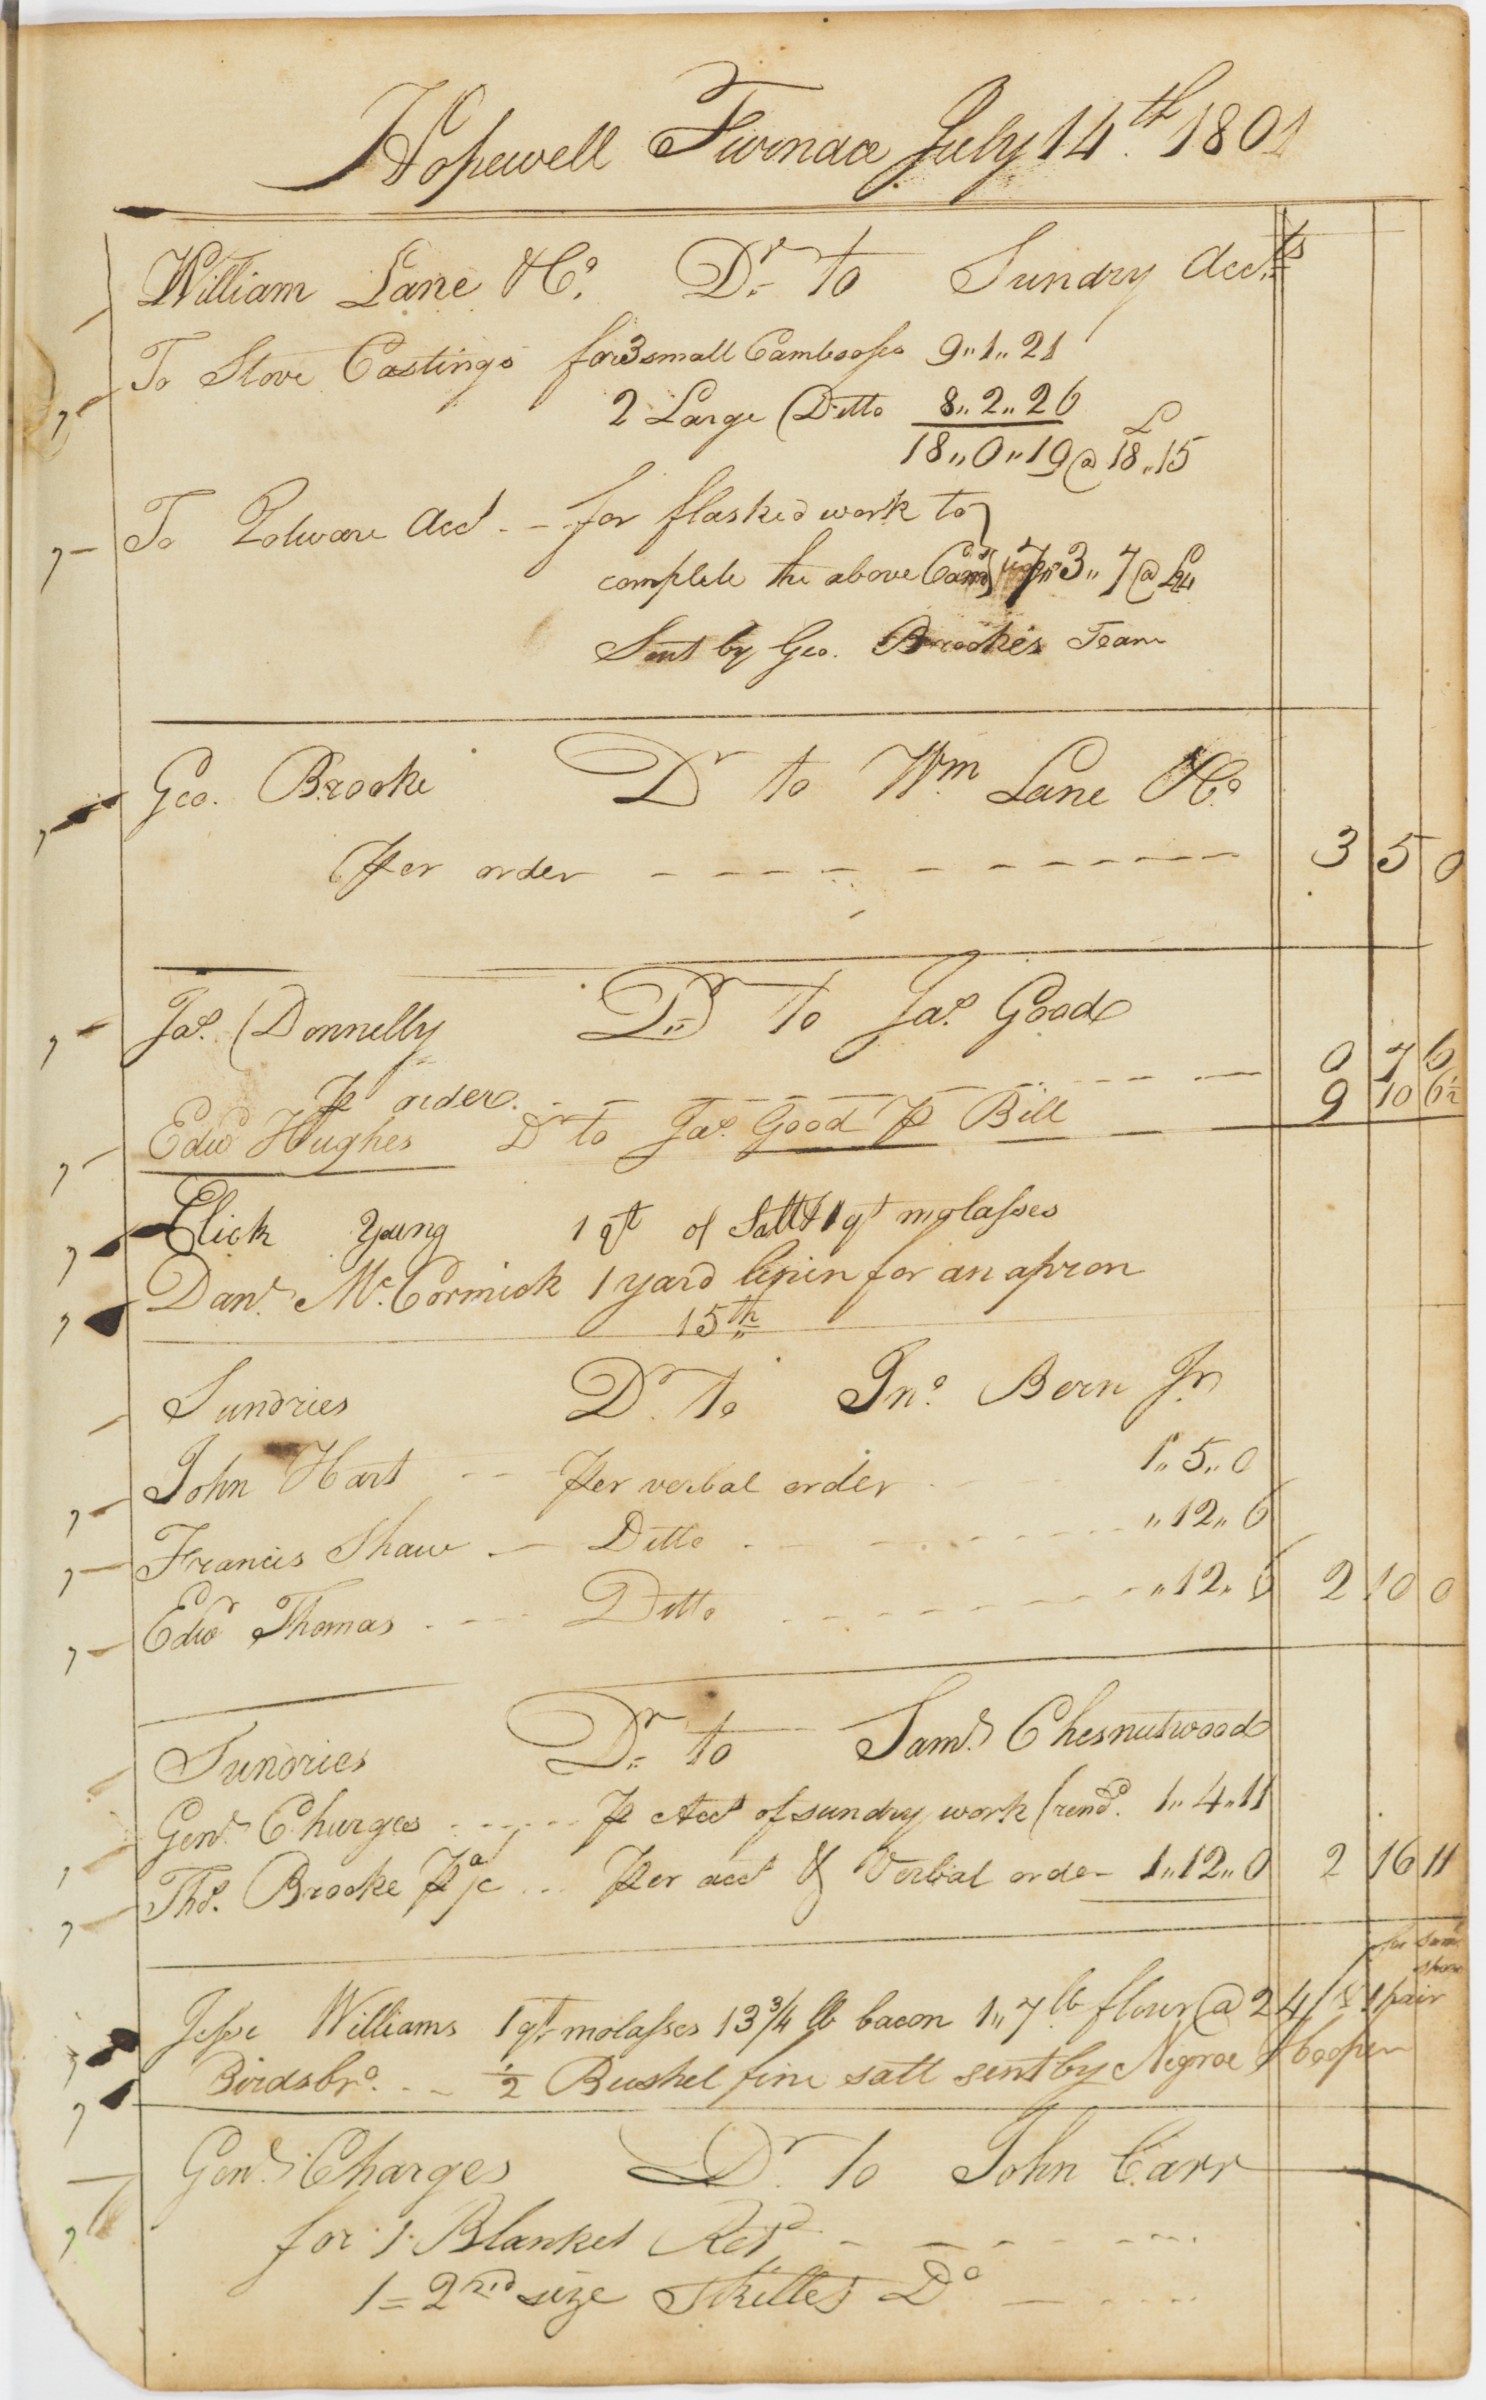 Hopewell Furnace July 14th. 1801
William Lane & Co. Dr. to Sundry Accts
To Stove Castings for 3 small Cambooses 9,, 1,, 21
2 Large Ditto 8,, 2,, 26
18,, 0,, 19 @ £18,, 15
To Potware Acct - - for flasked work to
complete the above 7,, 3,, 7 @
Sent by Geo. Brookes Team
Geo. Brooke Dr to Wm Lane & Co.
Per order - - - - - - - - 3 5 0
Jas. Donnelly Dr to Jas. Good
P order - - - - - - - 0 7 6
Edwd Hughes Dr to Jas. Good P Bill 9 10 6½
Elick Young 1 qt of Salt & 1 qt molasses
Danl. McCormick 1 yard linen for an apron
15th
Sundries Dr. to Jno. Bern Jr.
John Hart - - Per verbal order 1,, 5,, 0
Francis Shaw - Ditto - - - - ,, 12,, 6
Edwd Thomas - - - Ditto - - - - ,, 12,, 6 2 10 0
Sundries Dr. to Saml. Chesnutwood
Genl. Charges - - - - P Acct of sundry work rend. 1,, 4,, 11
Thos. Brooke P a/c - - Per acct & Verbal order 1,, 12,, 0 2 16 11
for Saml
shoes
Jesse Williams 1 qt molasses 13 3/4 lb bacon 1,, 7 lb flour @ 24/ & 1 pair
Birdsbro. - - ½ Bushel fine salt sent by Negroe Cooper
Genl. Charges Dr to John Carr
for 1 Blanket Retd - - - - -
1 = 2nd size Skillet Do - - - -